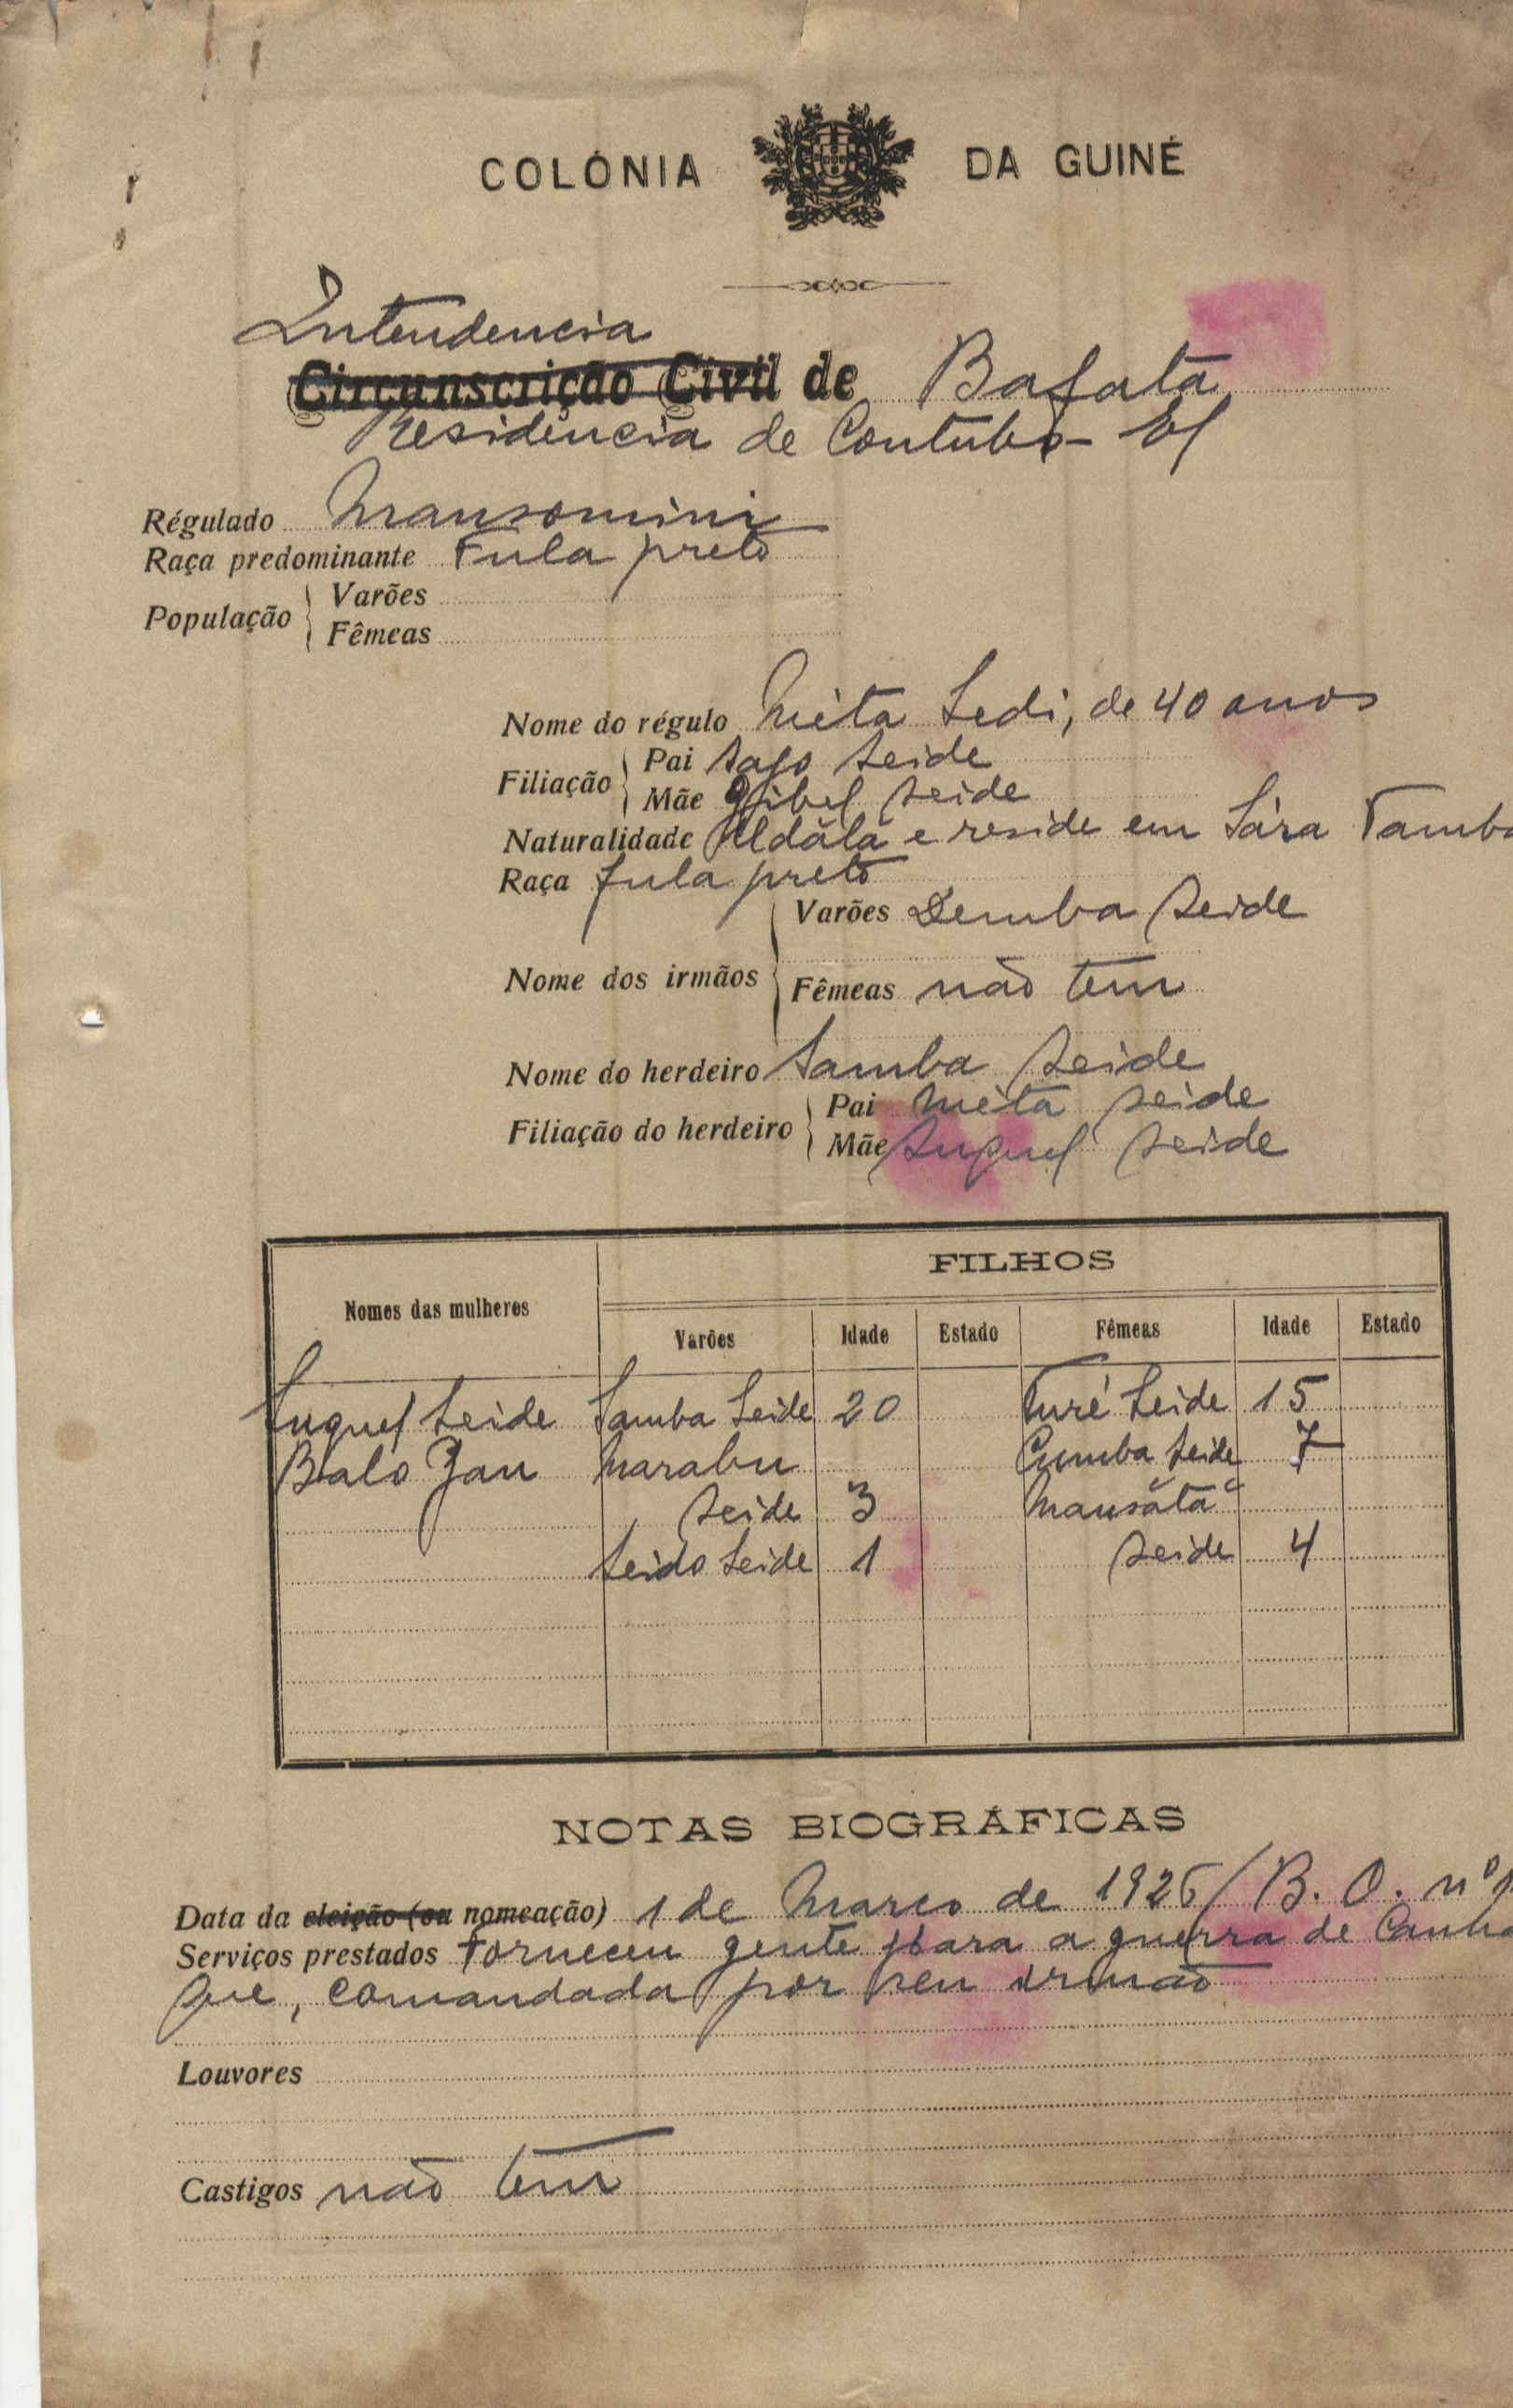 COLÓNIA DA GUINÉ
Intendencia
Circunscrição Civil de Bafatá
Residência de Contubo-El
Régulado Mansomini
Raça predominante Fula preto
População
Varões
Fêmeas
Nome do régulo Méta Sedi, de 40 anos
Filiação
Pai Seide
Mãe Seide
Naturalidade e reside em Sára Tamba
Raça fula preto
Nome dos irmãos
Varões Demba Seide
Fêmeas não tem
Nome do herdeiro Samba Seide
Filiação do herdeiro
Pai Méta Seide
Mãe Suquel Seide
FILHOS
Nomes das mulheres Varões Idade Estado Fêmeas Idade Estado
Suquel Seide Samba Seide 20 Turé Seide 15
Balo Marabu Cumba Seide 7
Seide 3 Mansáta
Seido Seide 1 Seide 4
NOTAS BIOGRÁFICAS
Data da eleição (ou nomeação) 1 de Março de 1926/B. O. nº
Serviços prestados Forneceu gente para a guerra de Canha
que, comandada por seu irmão
Louvores
Castigos não tem